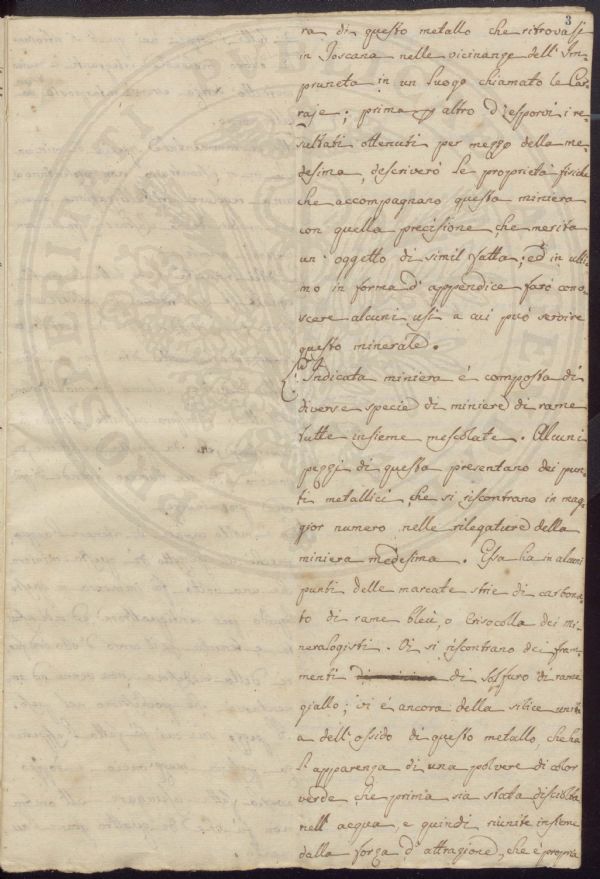 3
ra di questo metallo che ritrovasi
in Toscana nelle vicinanze dell'Im-
pruneta in un luogo chiamato le Car-
raje; prima altro d'esporvi i re-
sultati ottenuti per mezzo della me-
desima, descriverò le proprietà fisiche
che accompagnano questa miniera
con quella precisione, che merita
un' oggetto di simil fatta; ed in ulti-
mo in forma d'appendice farò cono-
scere alcuni usi a cui può servire
questo minerale.
Indicata miniera è composta di
diverse specie di miniere di rame
tutte insieme mescolate. Alcuni
pezzi di questa presentano dei pun-
ti metallici, che si riscontrano in mag-
gior numero nelle rilegature della
miniera medesima. Essa ha in alcuni
punti delle marcate strie di carbona-
to di rame bleù, o Crisocolla dei mi-
neralogisti. Vi si riscontrano dei fram-
menti di Solfuro di rame
giallo; vi è ancora della silice unita
a dell'ossido di questo metallo, che ha
l'apparenza di una polvere di color
verde che prima sia stata disciolta
nell'acqua, e quindi riunite insieme
dalla forza d'attrazione, che è propria